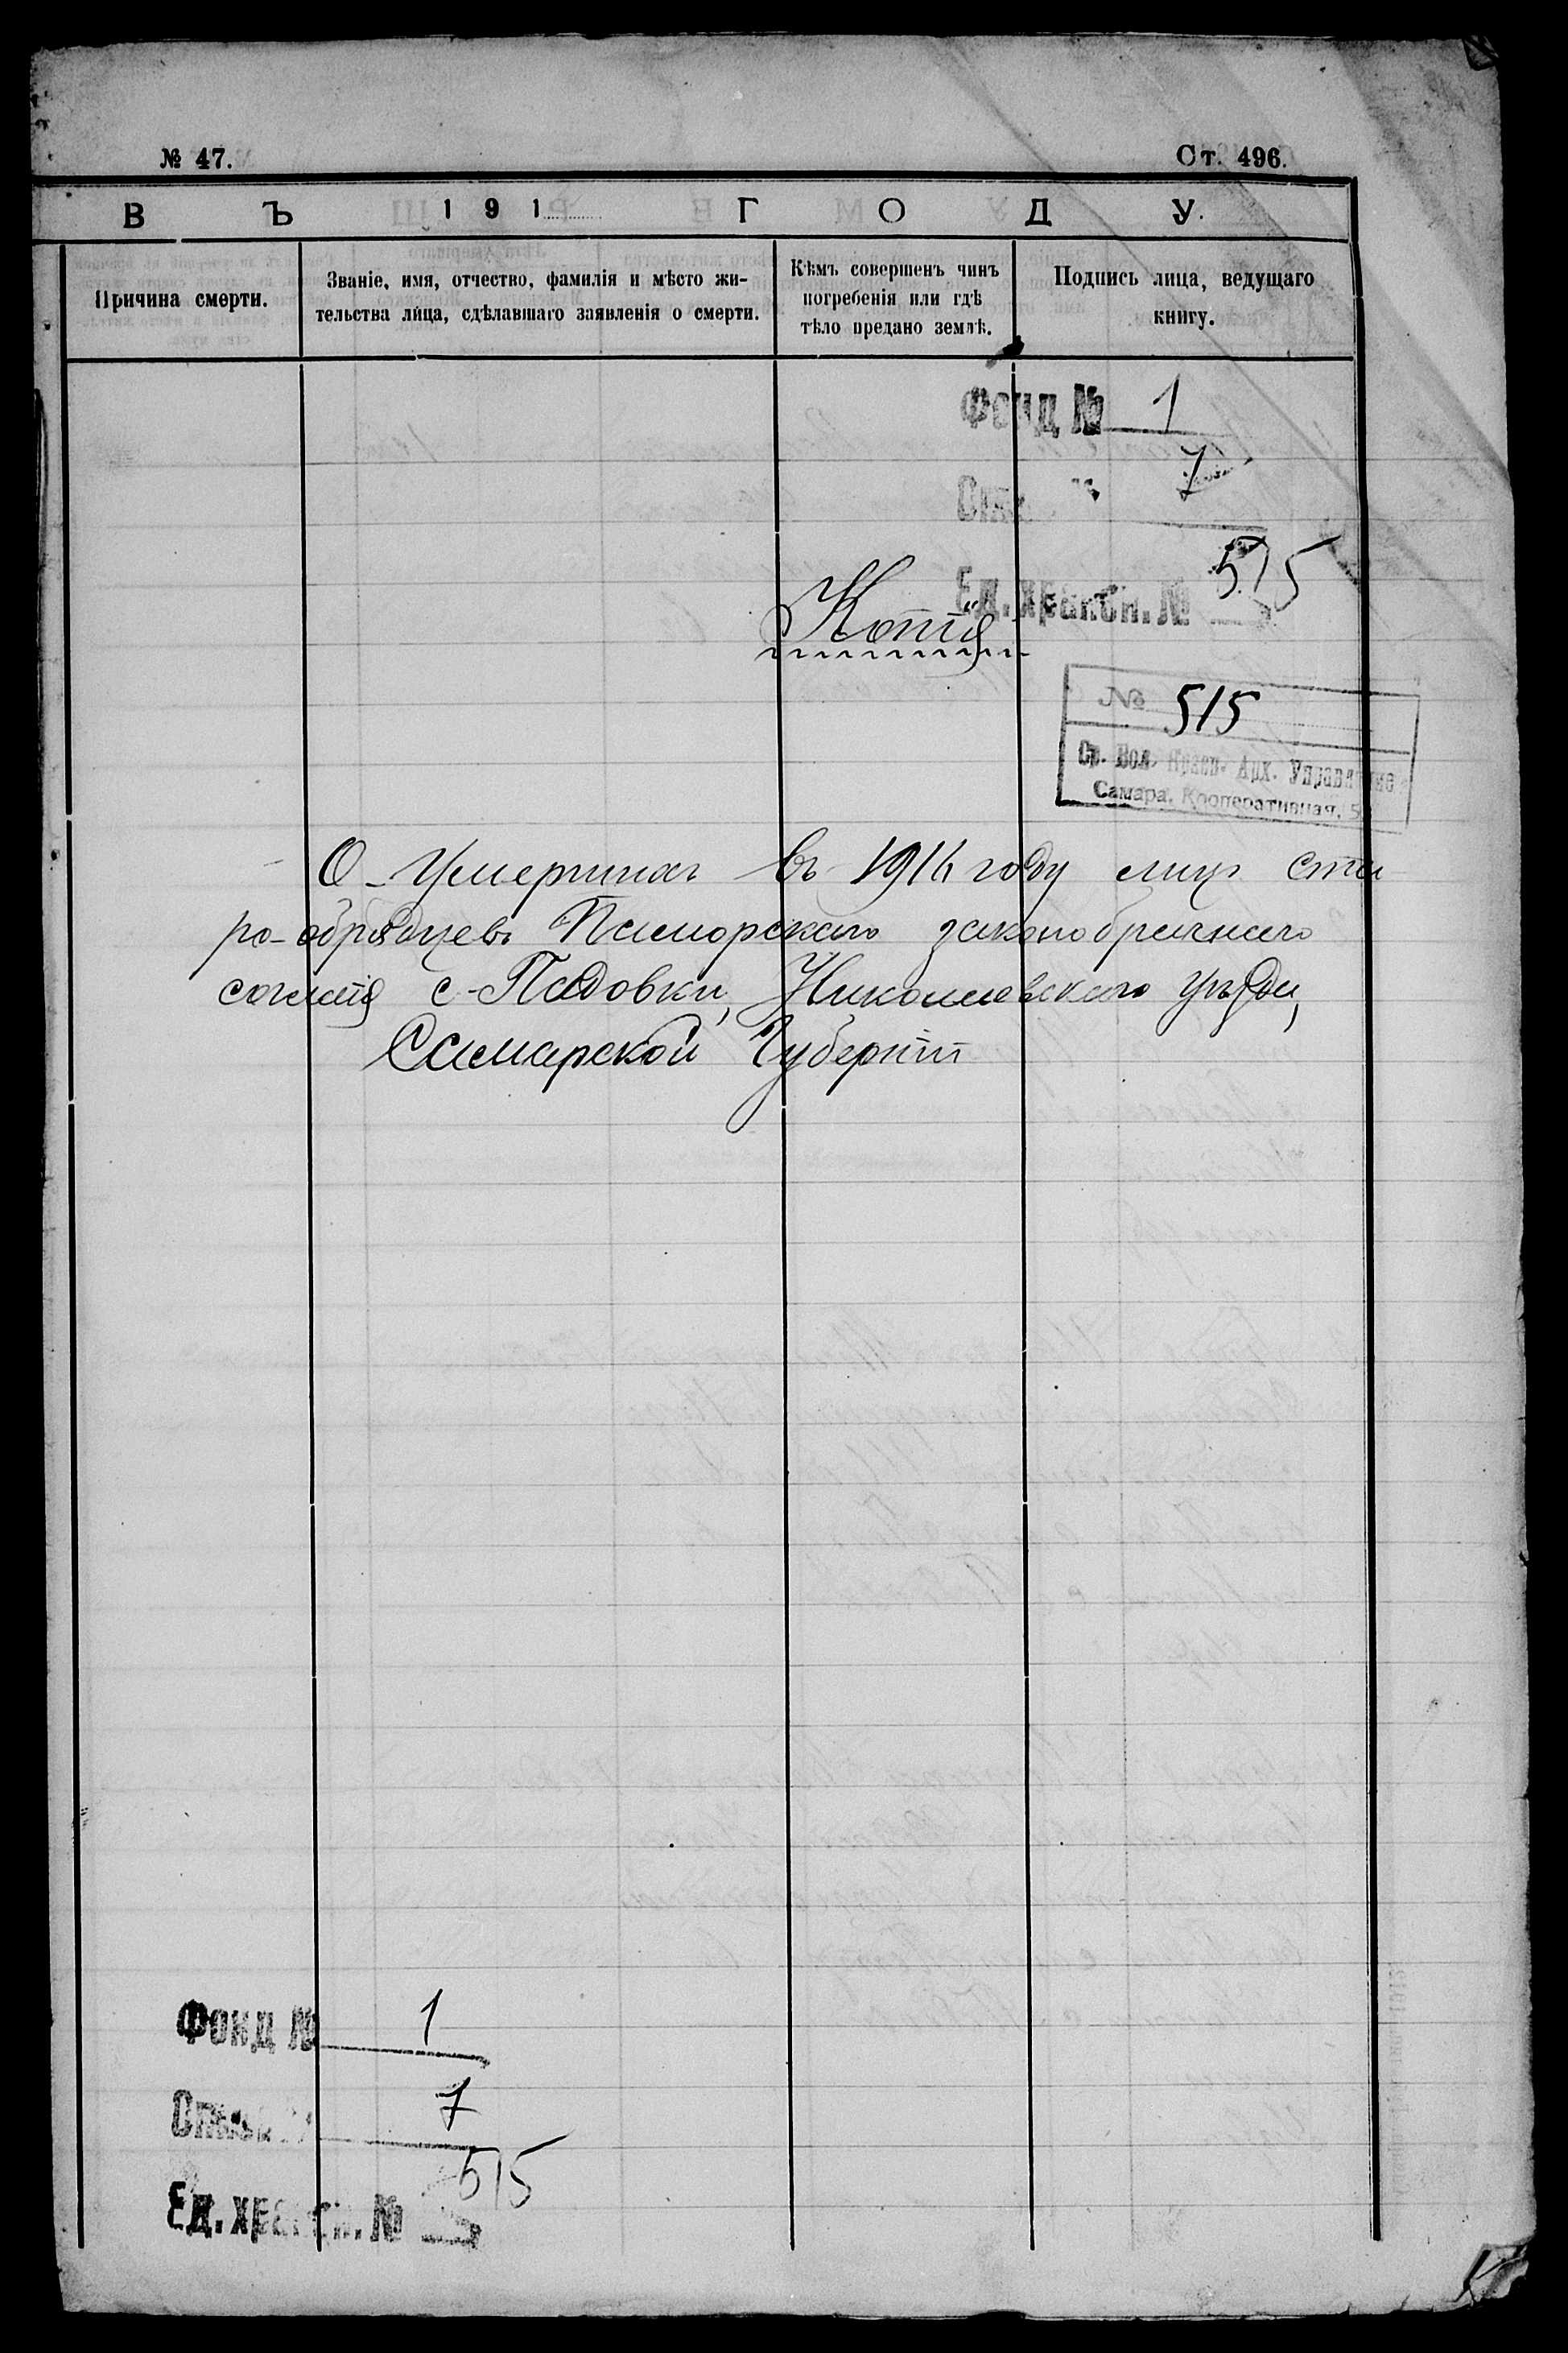 № 47. Ст. 496.
ВЪ 191 ГОДУ.
Причина смерти.
Званіе, имя, отчество, фамилія и мѣсто жи-
тельства лица, сдѣлавшаго заявленія о смерти.
Кѣмъ совершенъ чинъ
погребенія или гдѣ
тѣло предано землѣ.
Подпись лица, ведущаго
книгу.
Фонд № 1
7
Ед. хранен. № 515
Копія
№ 515
Ср. Вол. Краев. Арх. Управление
Самара, Кооперативная,
О умершихъ въ 1914 году лицъ ста
ро-обрядцевъ Паморскаго законобрачнаго
согласія с. Падовки, Николаевскаго уѣзда,
Самарской Губерніи
Фонд № 1
7
Ед. хранен. № 515